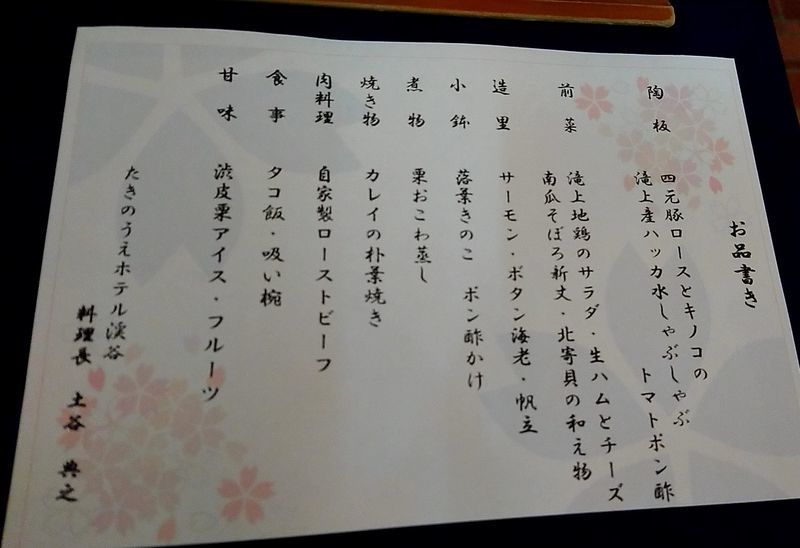 お品書き
陶板 四元豚ロースとキノコの
滝上産ハッカ水しゃぶしゃぶ トマトポン酢
前菜 滝上地鶏のサラダ・生ハムとチーズ
南瓜そぼろ新丈・北寄貝の和え物
造里 サーモン・ボタン海老・帆立
小鉢 落葉きのこ ポン酢かけ
煮物 栗おこわ蒸し
焼き物 カレイの朴葉焼き
肉料理 自家製ローストビーフ
食事 タコ飯・吸い椀
甘味 渋皮栗アイス・フルーツ
たきのうえホテル渓谷
料理長 土谷 典之